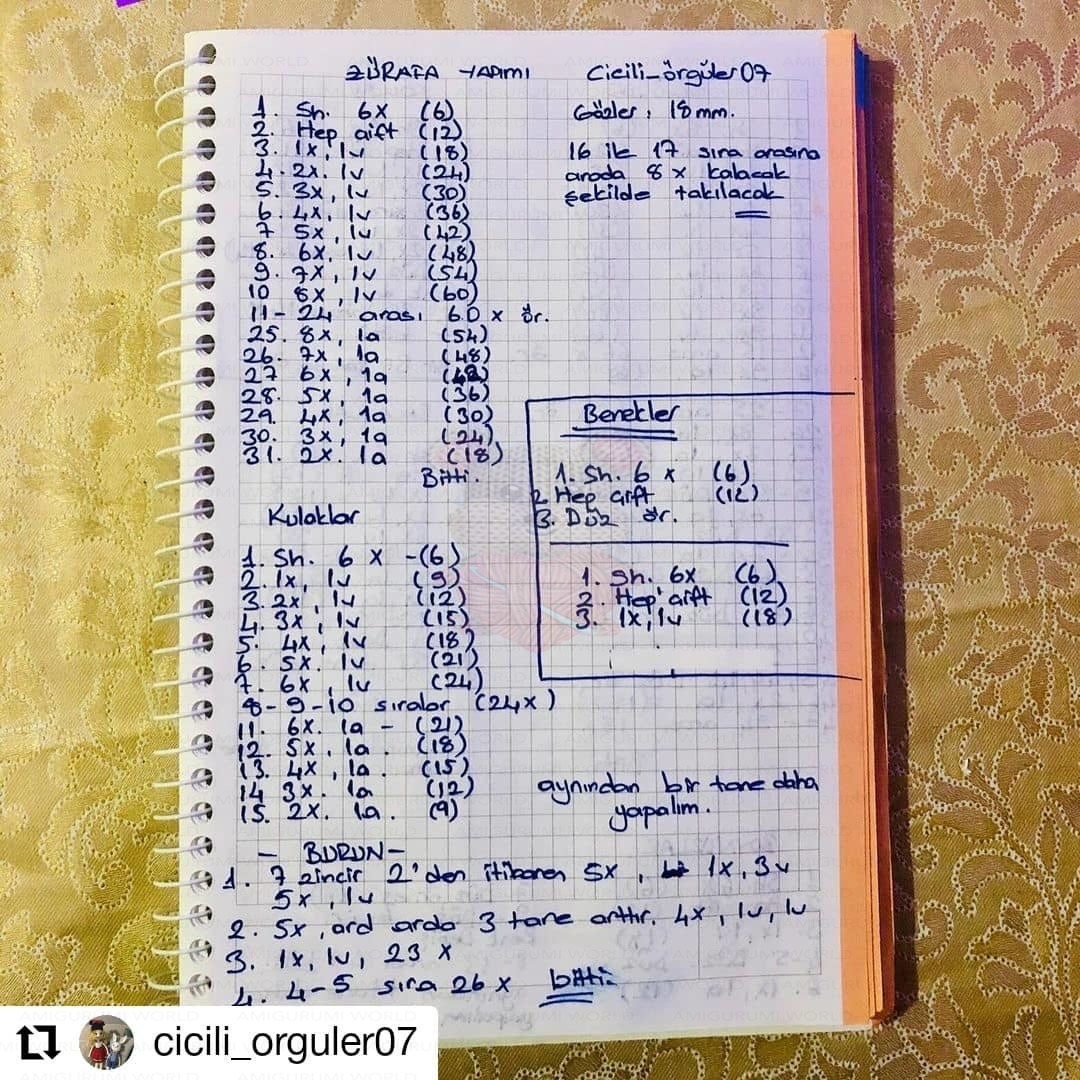 ZÜRAFA YAPIMI
Cicili_örgüler07
1. Sh. 6x (6)
2. Hep çift (12)
3. 1x, 1v (18)
4. 2x. 1v (24)
5. 3x, 1v (30)
6. 4x, 1v (36)
7 5x, 1v (42)
8. 6x, 1v (48)
9. 7x, 1v (54)
10 8x, 1v (60)
11 - 24 arası 60 x ör.
25. 8x, 1a (54)
26. 7x, 1a (48)
27 6x, 1a (42)
28. 5x, 1a (36)
29. 4x, 1a (30)
30. 3x, 1a (24)
31. 2x. 1a (18)
Bitti.
Gözler, 18 mm.
16 ile 17 sıra arasına
arada 8 x kalacak
şekilde takılacak
Benekler
1. Sh. 6 x (6)
2. Hep çift (12)
3. Düz ör.
1. Sh. 6x (6)
2. Hep çift (12)
3. 1x, 1v (18)
Kulaklar
1. Sh. 6 x - (6)
2. 1x, 1v (9)
3. 2x, 1v (12)
4. 3x, 1v (15)
5. 4x, 1v (18)
6. 5x. 1v (21)
7. 6x, 1v (24)
8 - 9 - 10 sıralar (24x)
11. 6x. 1a - (21)
12. 5x, 1a. (18)
13. 4x, 1a. (15)
14 3x. 1a (12)
15. 2x. 1a. (9)
aynından bir tane daha
yapalım.
- BURUN -
1. 7 zincir 2'den itibaren 5x, 1x, 3v
5x, 1v
2. 5x, ard arda 3 tane arttır. 4x, 1v, 1v
3. 1x, 1v, 23 x
4. 4-5 sıra 26 x bitti.
cicili_orguler07
AMIGURUMI WORLD